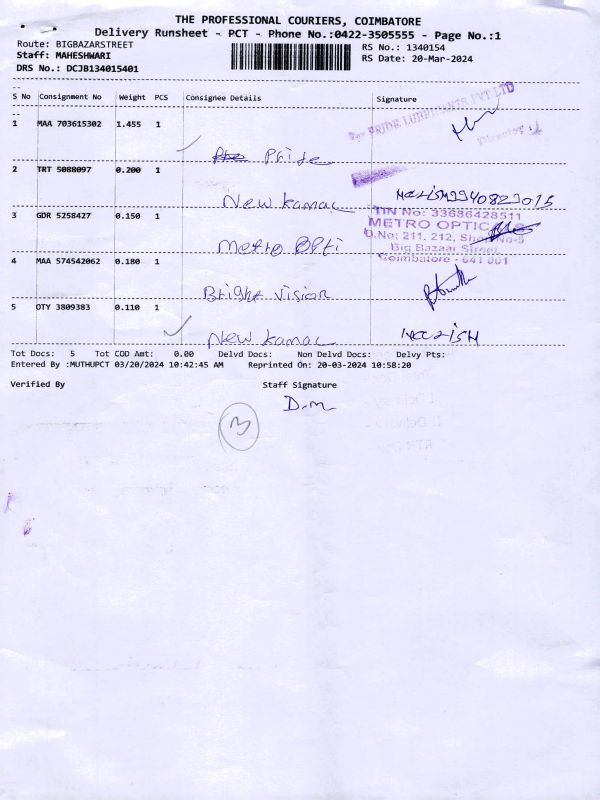 THE PROFESSIONAL COURIERS, COIMBATORE
Delivery Runsheet - PCT - Phone No.:0422-3505555 - Page No.:1
Route: BIGBAZARSTREET
Staff: MAHESHWARI
DRS No.: DCJB134015401
RS No.: 1340154
RS Date: 20-Mar-2024
S No Consignment No Weight PCS Consignee Details Signature
1 MAA 703615302 1.455 1
For PRIDE LUBRICANTS PVT LTD
Director
Pride
2 TRT 5088097 0.200 1
New kamal Harish 9940829015
3 GDR 5258427 0.150 1
TIN No: 33686428511
METRO OPTICALS
D.No: 211, 212, Shop No-5
Big Bazaar Street
Coimbatore - 641 001
Metro Opti
4 MAA 574542062 0.180 1
Bright Vision
5 OTY 3809383 0.110 1
New kamal Harish
Tot Docs: 5 Tot COD Amt: 0.00 Delvd Docs: Non Delvd Docs: Delvy Pts:
Entered By :MUTHUPCT 03/20/2024 10:42:45 AM Reprinted On: 20-03-2024 10:58:20
Verified By Staff Signature
D.m